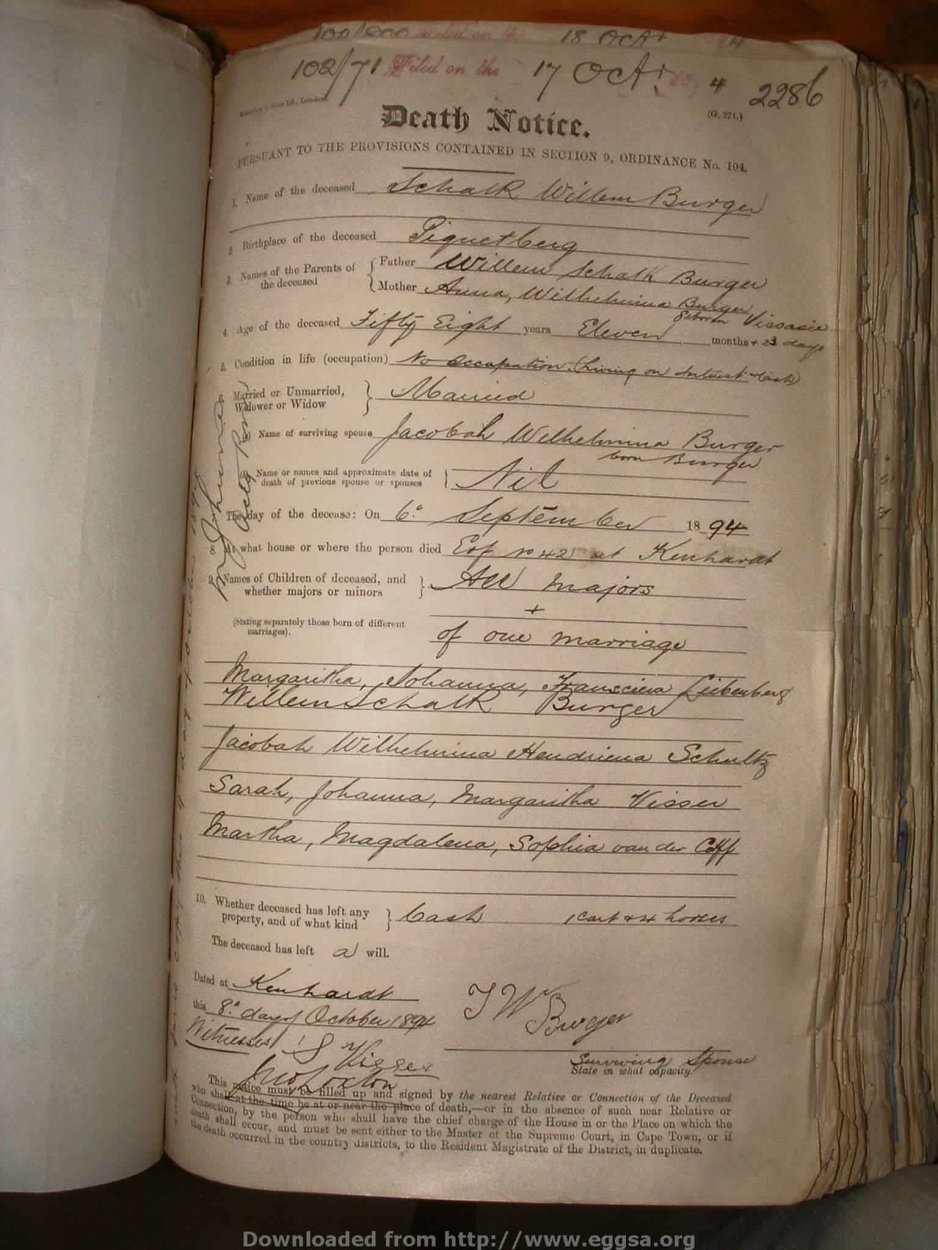 102/71 Filed on the 17 Oct. 4 2286
(G. 271.)
Death Notice.
PURSUANT TO THE PROVISIONS CONTAINED IN SECTION 9, ORDINANCE No. 104.
1. Name of the deceased Schalk Willem Burger
2. Birthplace of the deceased Piquetberg
3. Names of the Parents of the deceased { Father Willem Schalk Burger
Mother Anna, Wilhelmina Burger
geboren Vissasie
4. Age of the deceased Fifty Eight years Eleven months + 23 days
5. Condition in life (occupation) No occupation. (Living on Interest Cash)
Married or Unmarried, Widower or Widow } Married
Name of surviving spouse Jacobah Wilhelmina Burger
born Burger
Name or names and approximate date of death of previous spouse or spouses } Nil
The day of the decease: On 6th September 1894
8. At what house or where the person died Erf No 42 at Kenhardt
9. Names of Children of deceased, and whether majors or minors } All Majors
+
(Stating separately those born of different marriages). of one marriage
Margaritha, Johanna, Franscina Liebenberg
Willem Schalk Burger
Jacobah Wilhelmina Hendriena Schultz
Sarah, Johanna, Margaritha Visser
Martha, Magdalena, Sophia van der Coff
10. Whether deceased has left any property, and of what kind } Cash 1 cart + 4 horses
The deceased has left a will.
Dated at Kenhardt
this 8th day of October 1894
J W Burger
Witnesses
S Visser
Jno Loxton
Surviving Spouse
State in what capacity.
This notice must be filled up and signed by the nearest Relative or Connection of the Deceased
who shall at the time be at or near the place of death,—or in the absence of such near Relative or
Connection, by the person who shall have the chief charge of the House in or the Place on which the
death shall occur, and must be sent either to the Master of the Supreme Court, in Cape Town, or if
the death occurred in the country districts, to the Resident Magistrate of the District, in duplicate.
Downloaded from http://www.eggsa.org